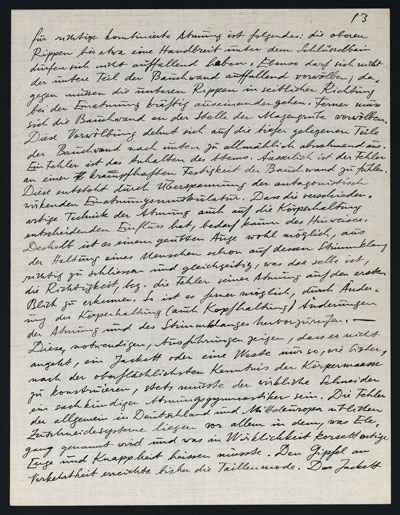 13
für richtige kombinierte Atmung ist folgendes: die oberen
Rippen bis etwa eine Handbreit unter dem Schlüsselbein
dürfen sich nicht auffallend heben, Ebenso darf sich nicht
der untere Teil der Bauchwand auffallend vorwölben, da-
gegen müssen die unteren Rippen in seitlicher Richtung
bei der Einatmung kräftig auseinander gehen. Ferner muss
sich die Bauchwand an der Stelle der Magengrube vorwölben.
Diese Vorwölbung dehnt sich auf die tiefer gelegenen Teile
der Bauchwand nach unten zu allmählich abnehmend aus.
Ein Fehler ist das Anhalten des Atems. Äusserlich ist der Fehler
an einer krampfhaften Festigkeit der Bauchwand zu fühlen.
Diese entsteht durch Überspannung der antagonistisch
wirkenden Einatmungsmuskulatur. Dass die verschieden-
artige Technik der Atmung auch auf die Körperhaltung
entscheidenden Einfluss hat, bedarf kaum des Hinweises.
Deshalb ist es einem geübten Auge wohl möglich, aus
der Haltung eines Menschen schon auf dessen Stimmklang
richtig zu schliessen und gleichzeitig, was das selbe ist,
die Richtigkeit, bzg. die Fehler seiner Atmung auf den ersten
Blick zu erkennen. So ist es ferner möglich, durch Änder-
ung der Körperhaltung (auch Kopfhaltung) Änderungen
der Atmung und des Stimmklanges hervorzurufen. —
Diese, notwendigen, Ausführungen zeigen, dass es nicht
angeht, ein Jackett oder eine Weste nur so, wie bisher,
nach der oberflächlichsten Kenntnis der Körpermaasse
zu konstruieren, stets müsste der wirkliche Schneider
ein sachkundiger Atmungsgymnastiker sein. Die Fehler
der allgemein in Deutschland und Mitteleuropa üblichen
Zuschneidesysteme liegen vor allem in dem, was Ele-
ganz genannt wird und was in Wirklichkeit korsettartige
Enge und Knappheit heissen müsste. Den Gipfel an
Verkehrtheit erreichte bisher die Taillenmode. Das Jackett